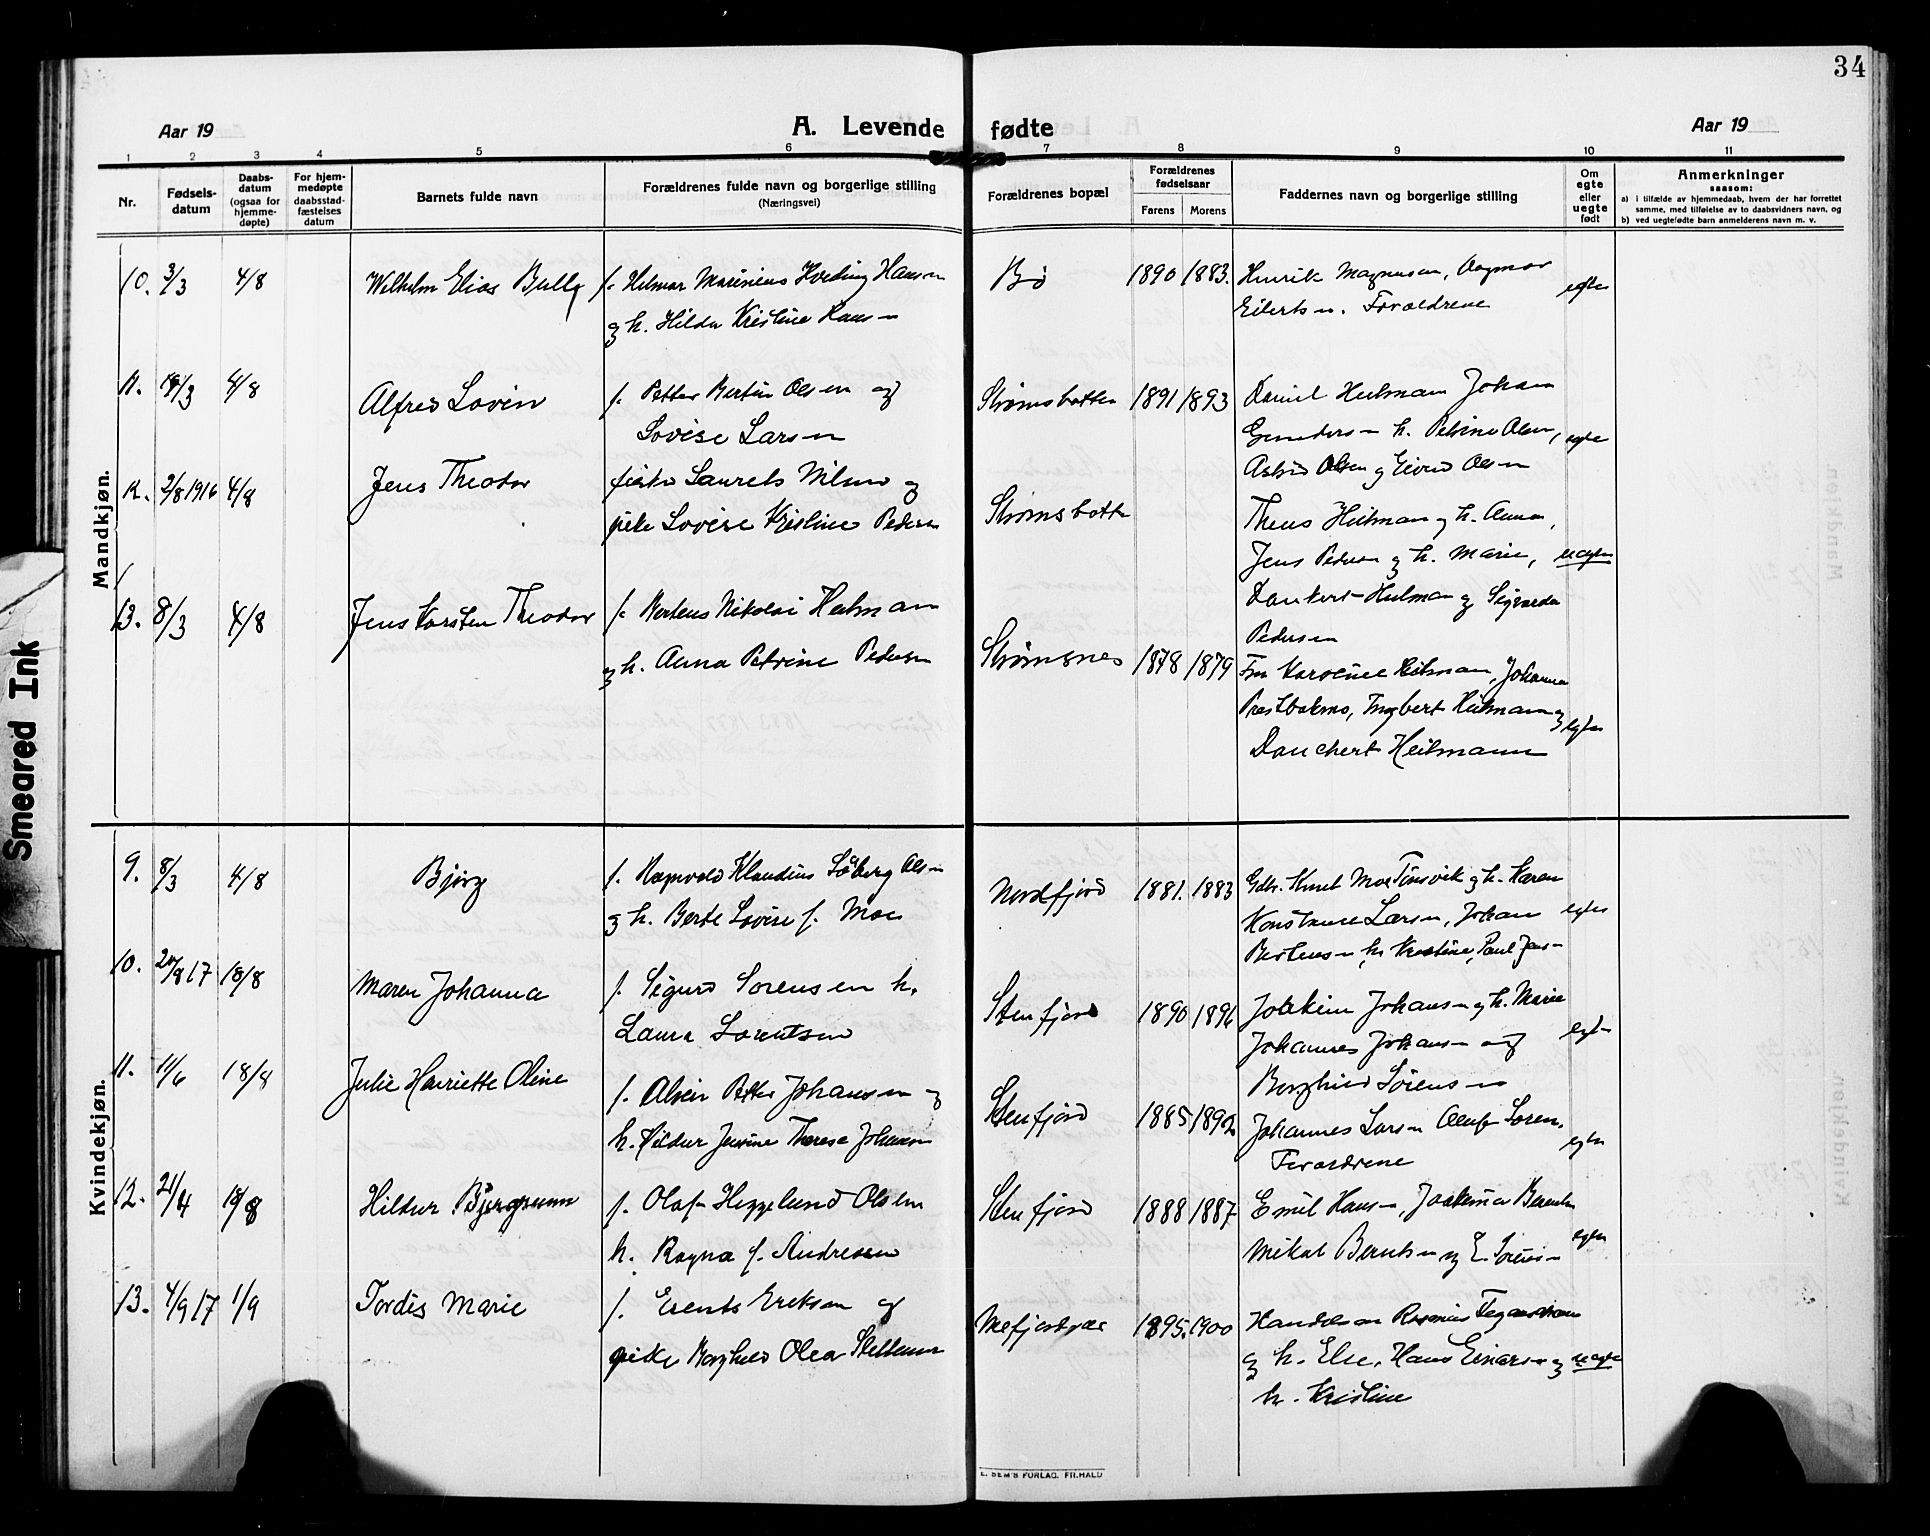 34
Aar 19
A. Levende fødte
Aar 19
1 2 3 4 5 6 7 8 9 10 11
Nr.
Fødsels-
datum
Daabs-
datum
(ogsaa for
hjemme-
døpte)
For hjem-
medøpte
daabsstad-
fæstelses
datum
Barnets fulde navn
Forældrenes fulde navn og borgerlige stilling
(Næringsvei)
Forældrenes bopæl
Forældrenes
fødselsaar
Farens Morens
Faddernes navn og borgerlige stilling
Om
egte
eller
uegte
født
Anmerkninger
saasom:
a) i tilfælde av hjemmedaab, hvem der har forrettet
samme, med tilføielse av to daabsvidners navn, og
b) ved uegtefødte barn anmelderens navn m. v.
Mandkjøn.
10. 3/3 4/8 Wilhelm Elias Bully f. Helmar Marinius Hveding Hansen Bø 1890 1883. Henrik Magnusen, Dagmar
og h. Hilda Kristine Hansen Eilertsen. Forældrene egte
11. 4/8 Alfred Lovin f. Petter Bertin Olsen og Strømsbotten 1891 1893 Daniel Heitman Johan
Lovise Larsen h. Petrine Olsen, egte
Astrid Olsen og Eivind Olsen
12. 2/8 1916 4/8 Jens Theodor Laurets Nilsen og Strømsbotten Theus Heitman og h. Anna,
pike Lovise Kristine Pedersen Jens Pedersen og h. Marie, uegte
Dankert Heitman og Sigvarda
Pedersen
13. 8/3 4/8 Jens Karsten Theodor f. Mortens Nikolai Heitman Strømsnes 1878 1879 Fru Karoline Heitman, Johanna
og h. Anna Petrine Pedersen Prestbakmo, Ingbert Heitman og egte
Danchert Heitmann
Kvindekjøn.
9. 8/3 4/8 Bjørg f. Ragnvald Klaudius Søberg Olsen Nordfjord 1881. 1883 Gdbr. Knut Moe Tinsvik og h. Karen
og h. Berte Lovise f. Moe Konstance Larsen, Johan egte
Bertensen, h. Kristine, Paul Jensen
10. 17 18/8 Maren Johanna f. Sigurd Sorensen h. Stenfjord 1890 1896 Joakim Johansen og h. Marie
Laura Lorentsen Johannes Johansen og egte
Borghild Sörensen
11. 11/6 18/8 Julie Hariette Oline f. Alvin Petter Johansen og Stenfjord 1885 1892 Johannes Larsen Oluf Soren.
h. Hildur Jensine Therese Johansen Forældrene egte
12. 21/4 18/8 Hildur Bjørgunn f. Olaf Heggelund Olsen Stenfjord 1888 1887 Emil Hansen, Joakima Berntsen
h. Ragna f. Andresen Mikal Berntsen og E. Sörensen egte
13. 4/9 17 1/9 Tordis Marie f. Erents Eriksen og Mefjordvær 1895. 1900 Handelsman Rasmus Tegander
pike Borghild Olea Steffensen og h. Else, Hans Einarsen og uegte
h. Kristine
E. SEM'S FORLAG. FR.HALD
Smeared Ink